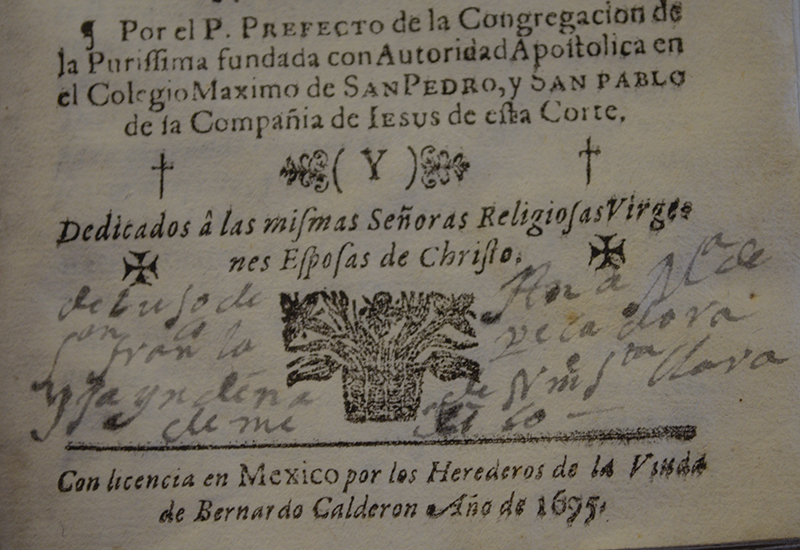 ¶ Por el P. PREFECTO de la Congregacion de
la Purissima fundada con Autoridad Apostolica en
el Colegio Maximo de SAN PEDRO, y SAN PABLO
de la Compañia de IESUS de esta Corte.
( Y )
Dedicados â las mismas Señoras Religiosas Virge-
nes Esposas de Christo.
del uso de
Ana Ma de
pecadora
de
Clara
de me
xi co
Con licencia en MEXICO por los Herederos de la Viuda
de Bernardo Calderon Año de 1695.